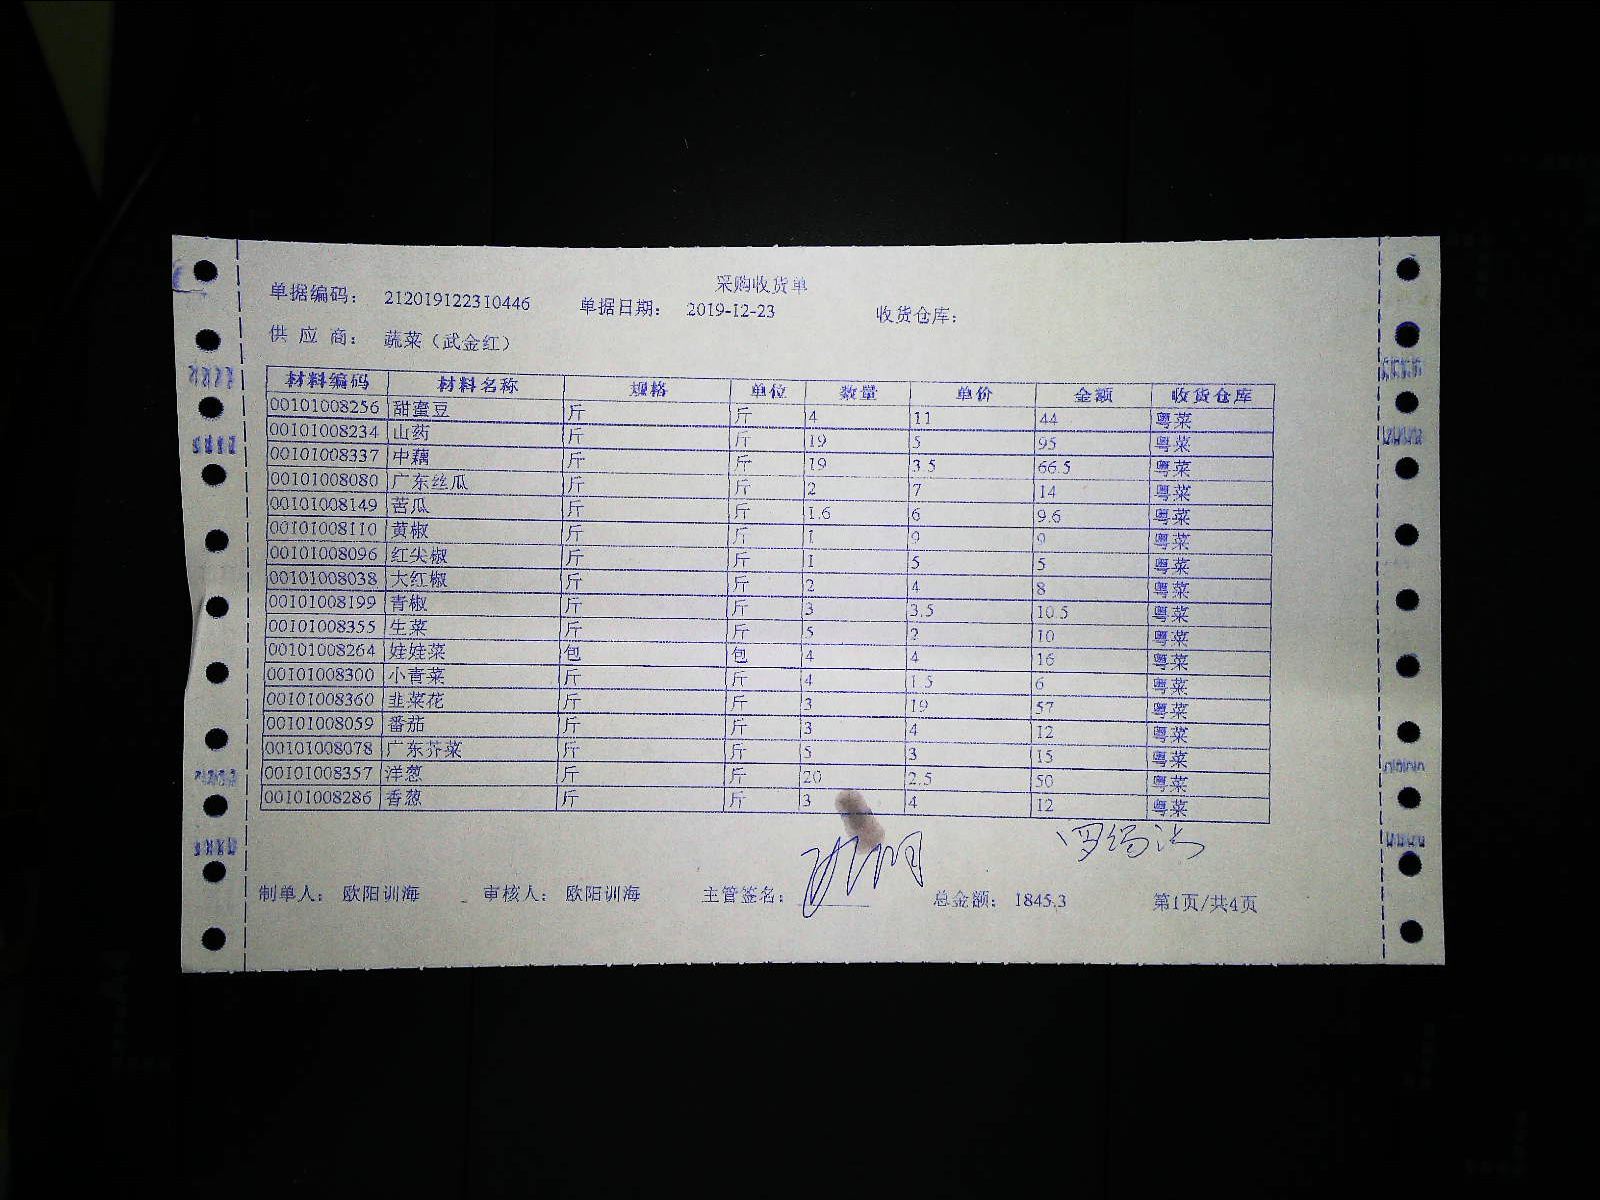 采购收货单
单据编码： 212019122310446 单据日期： 2019-12-23 收货仓库：
供 应 商： 蔬菜（武金红）
材料编码 材料名称 规格 单位 数量 单价 金额 收货仓库
00101008256 甜蜜豆 斤 斤 4 11 44 粤菜
00101008234 山药 斤 斤 19 5 95 粤菜
00101008337 中藕 斤 斤 19 3.5 66.5 粤菜
00101008080 广东丝瓜 斤 斤 2 7 14 粤菜
00101008149 苦瓜 斤 斤 1.6 6 9.6 粤菜
00101008110 黄椒 斤 斤 1 9 9 粤菜
00101008096 红尖椒 斤 斤 1 5 5 粤菜
00101008038 大红椒 斤 斤 2 4 8 粤菜
00101008199 青椒 斤 斤 3 3.5 10.5 粤菜
00101008355 生菜 斤 斤 5 2 10 粤菜
00101008264 娃娃菜 包 包 4 4 16 粤菜
00101008300 小青菜 斤 斤 4 1.5 6 粤菜
00101008360 韭菜花 斤 斤 3 19 57 粤菜
00101008059 番茄 斤 斤 3 4 12 粤菜
00101008078 广东芥菜 斤 斤 5 3 15 粤菜
00101008357 洋葱 斤 斤 20 2.5 50 粤菜
00101008286 香葱 斤 斤 3 4 12 粤菜
制单人： 欧阳训海 审核人： 欧阳训海 主管签名： 总金额： 1845.3 第1页/共4页